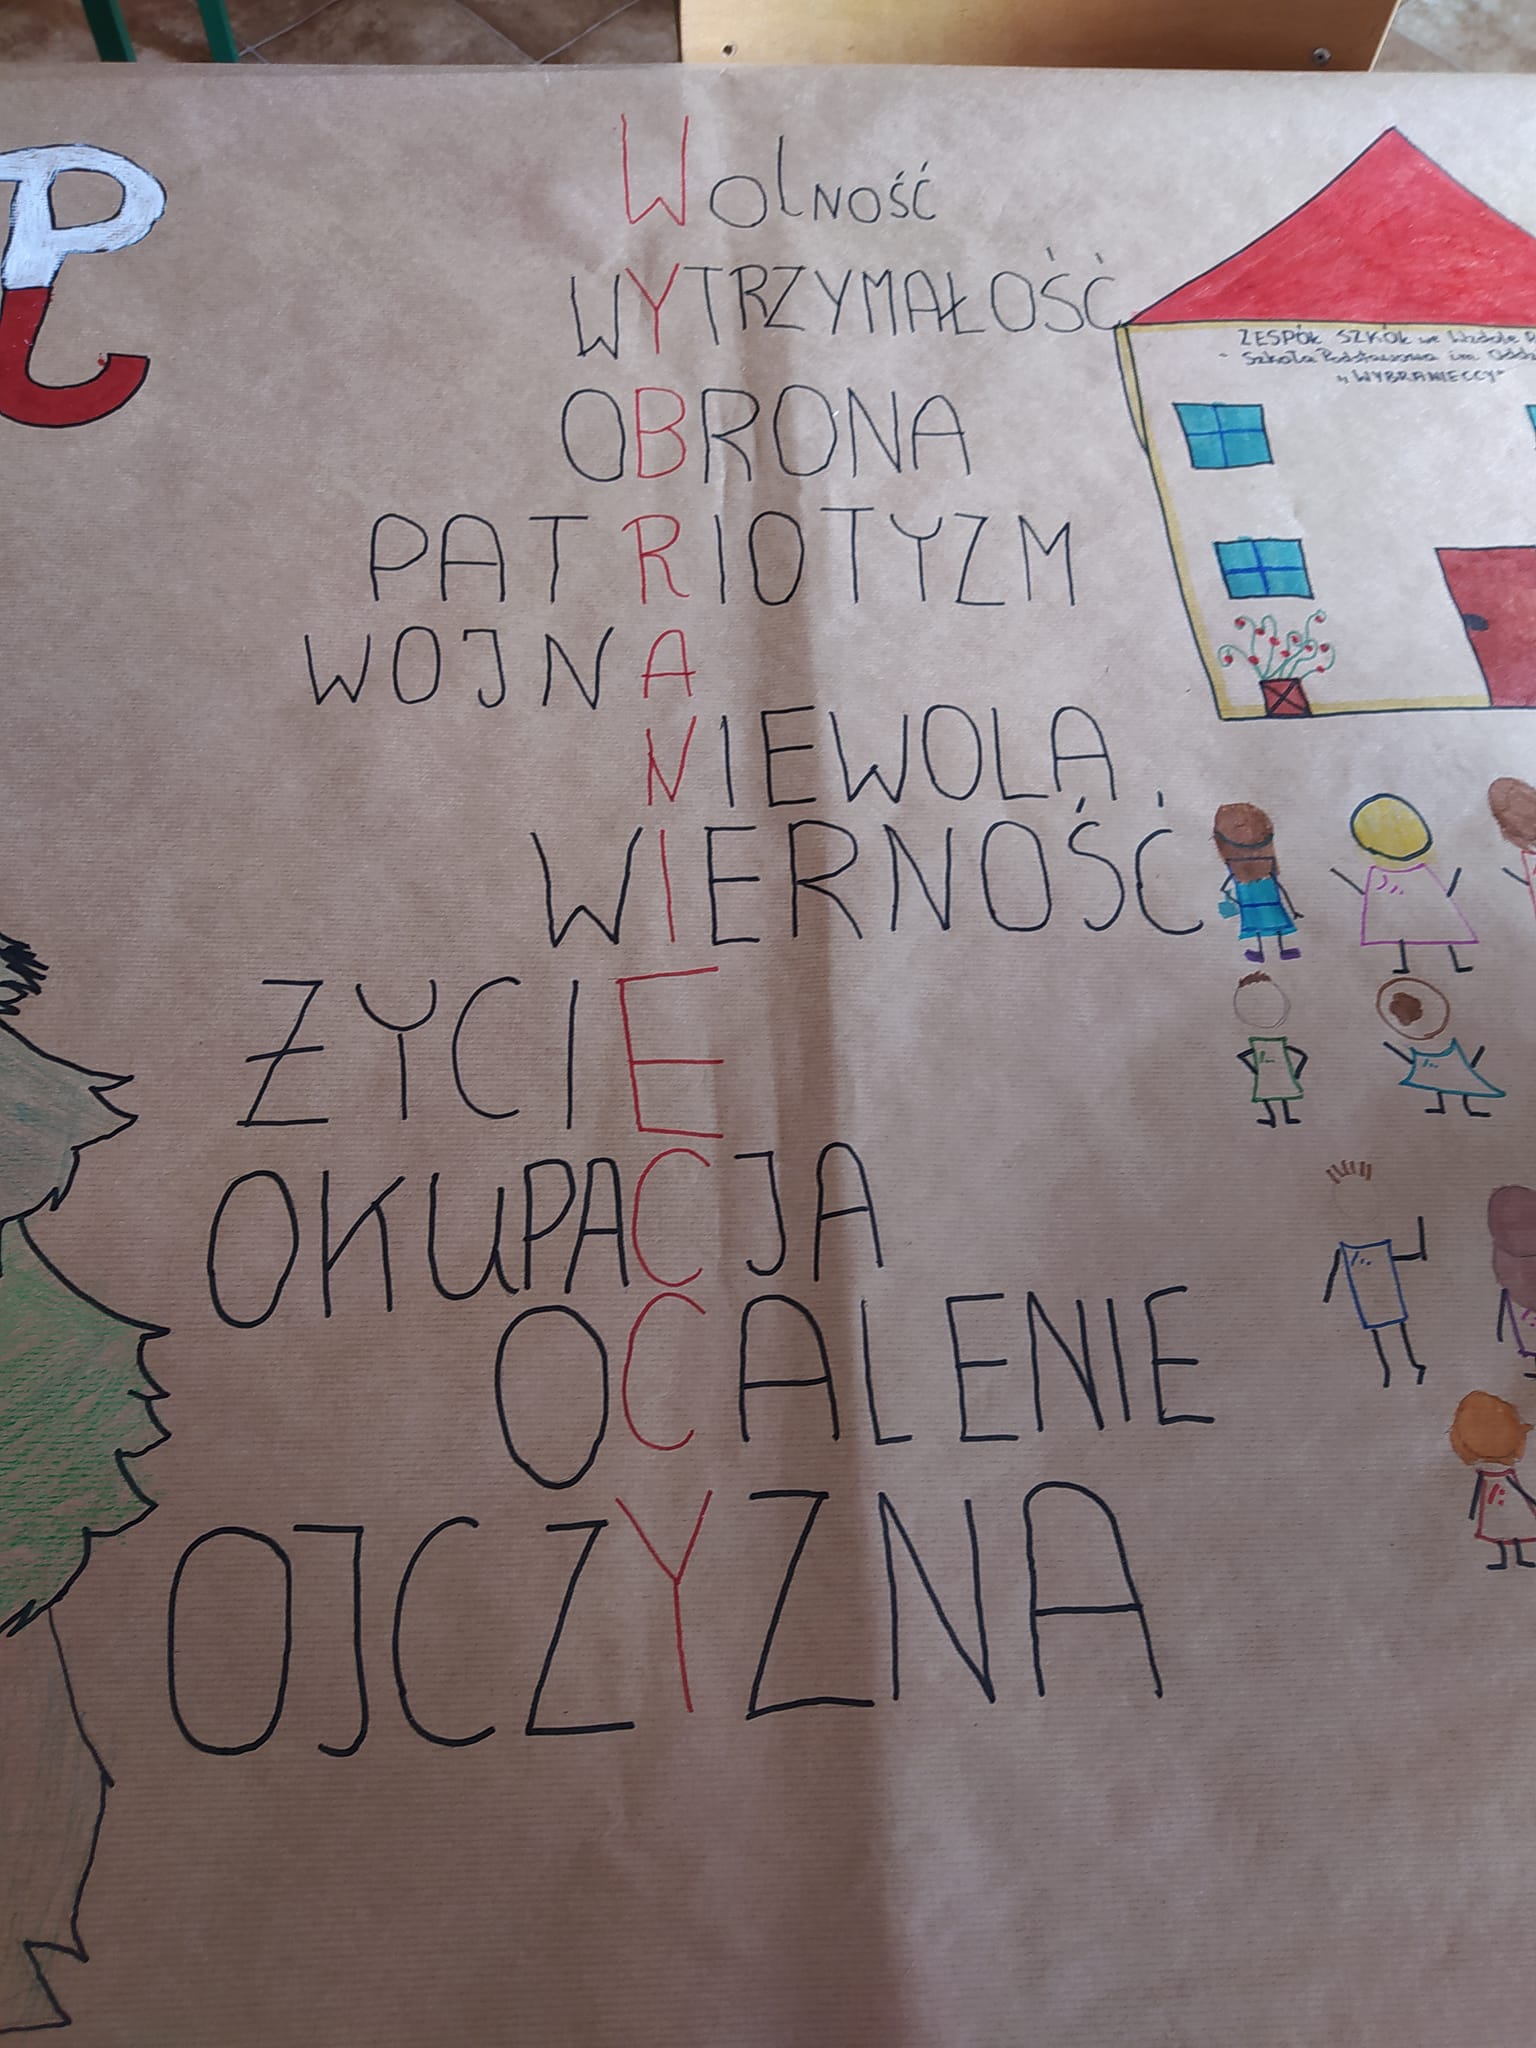 Wolność
WYTRZYMAŁOŚĆ
ZESPÓŁ SZKÓŁ we Wzdole
- Szkoła Podstawowa im
"WYBRANIECCY"
OBRONA
PATRIOTYZM
WOJNA
NIEWOLA
WIERNOŚĆ
ŻYCIE
OKUPACJA
OCALENIE
OJCZYZNA